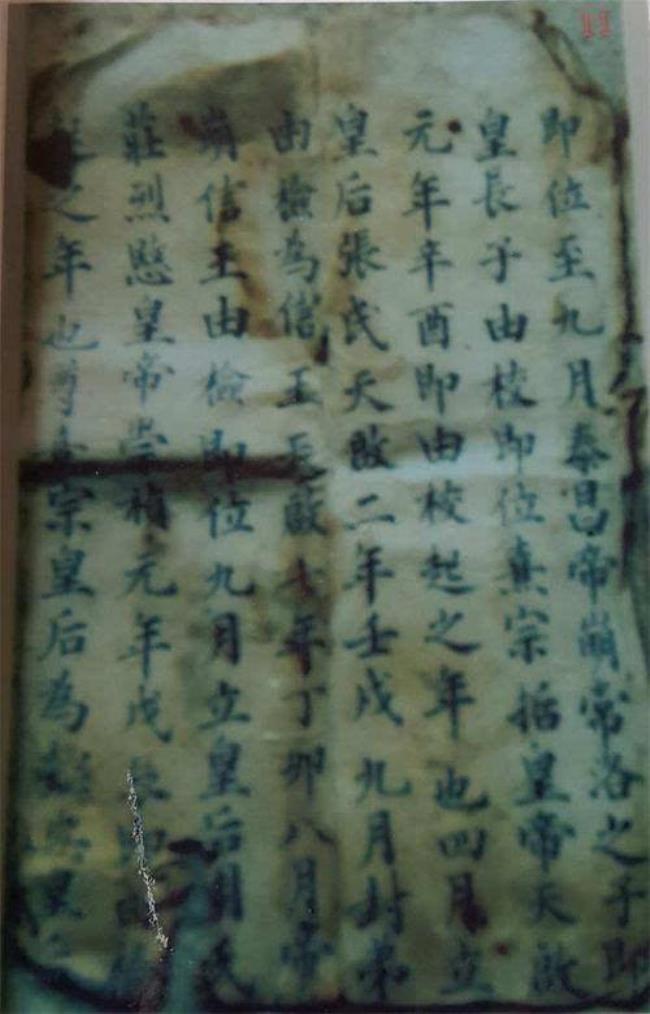 即位至九月泰昌帝崩常洛之子即
皇長子由校即位熹宗括皇帝天啟
元年辛酉即由校起之年也四月立
皇后張氏天啟二年壬戌九月封弟
由檢為信王天啟七年丁卯八月帝
崩信王由檢即位九月立皇后周氏
莊烈愍皇帝崇禎元年戊辰即由檢
之年也尊熹宗皇后為懿安皇